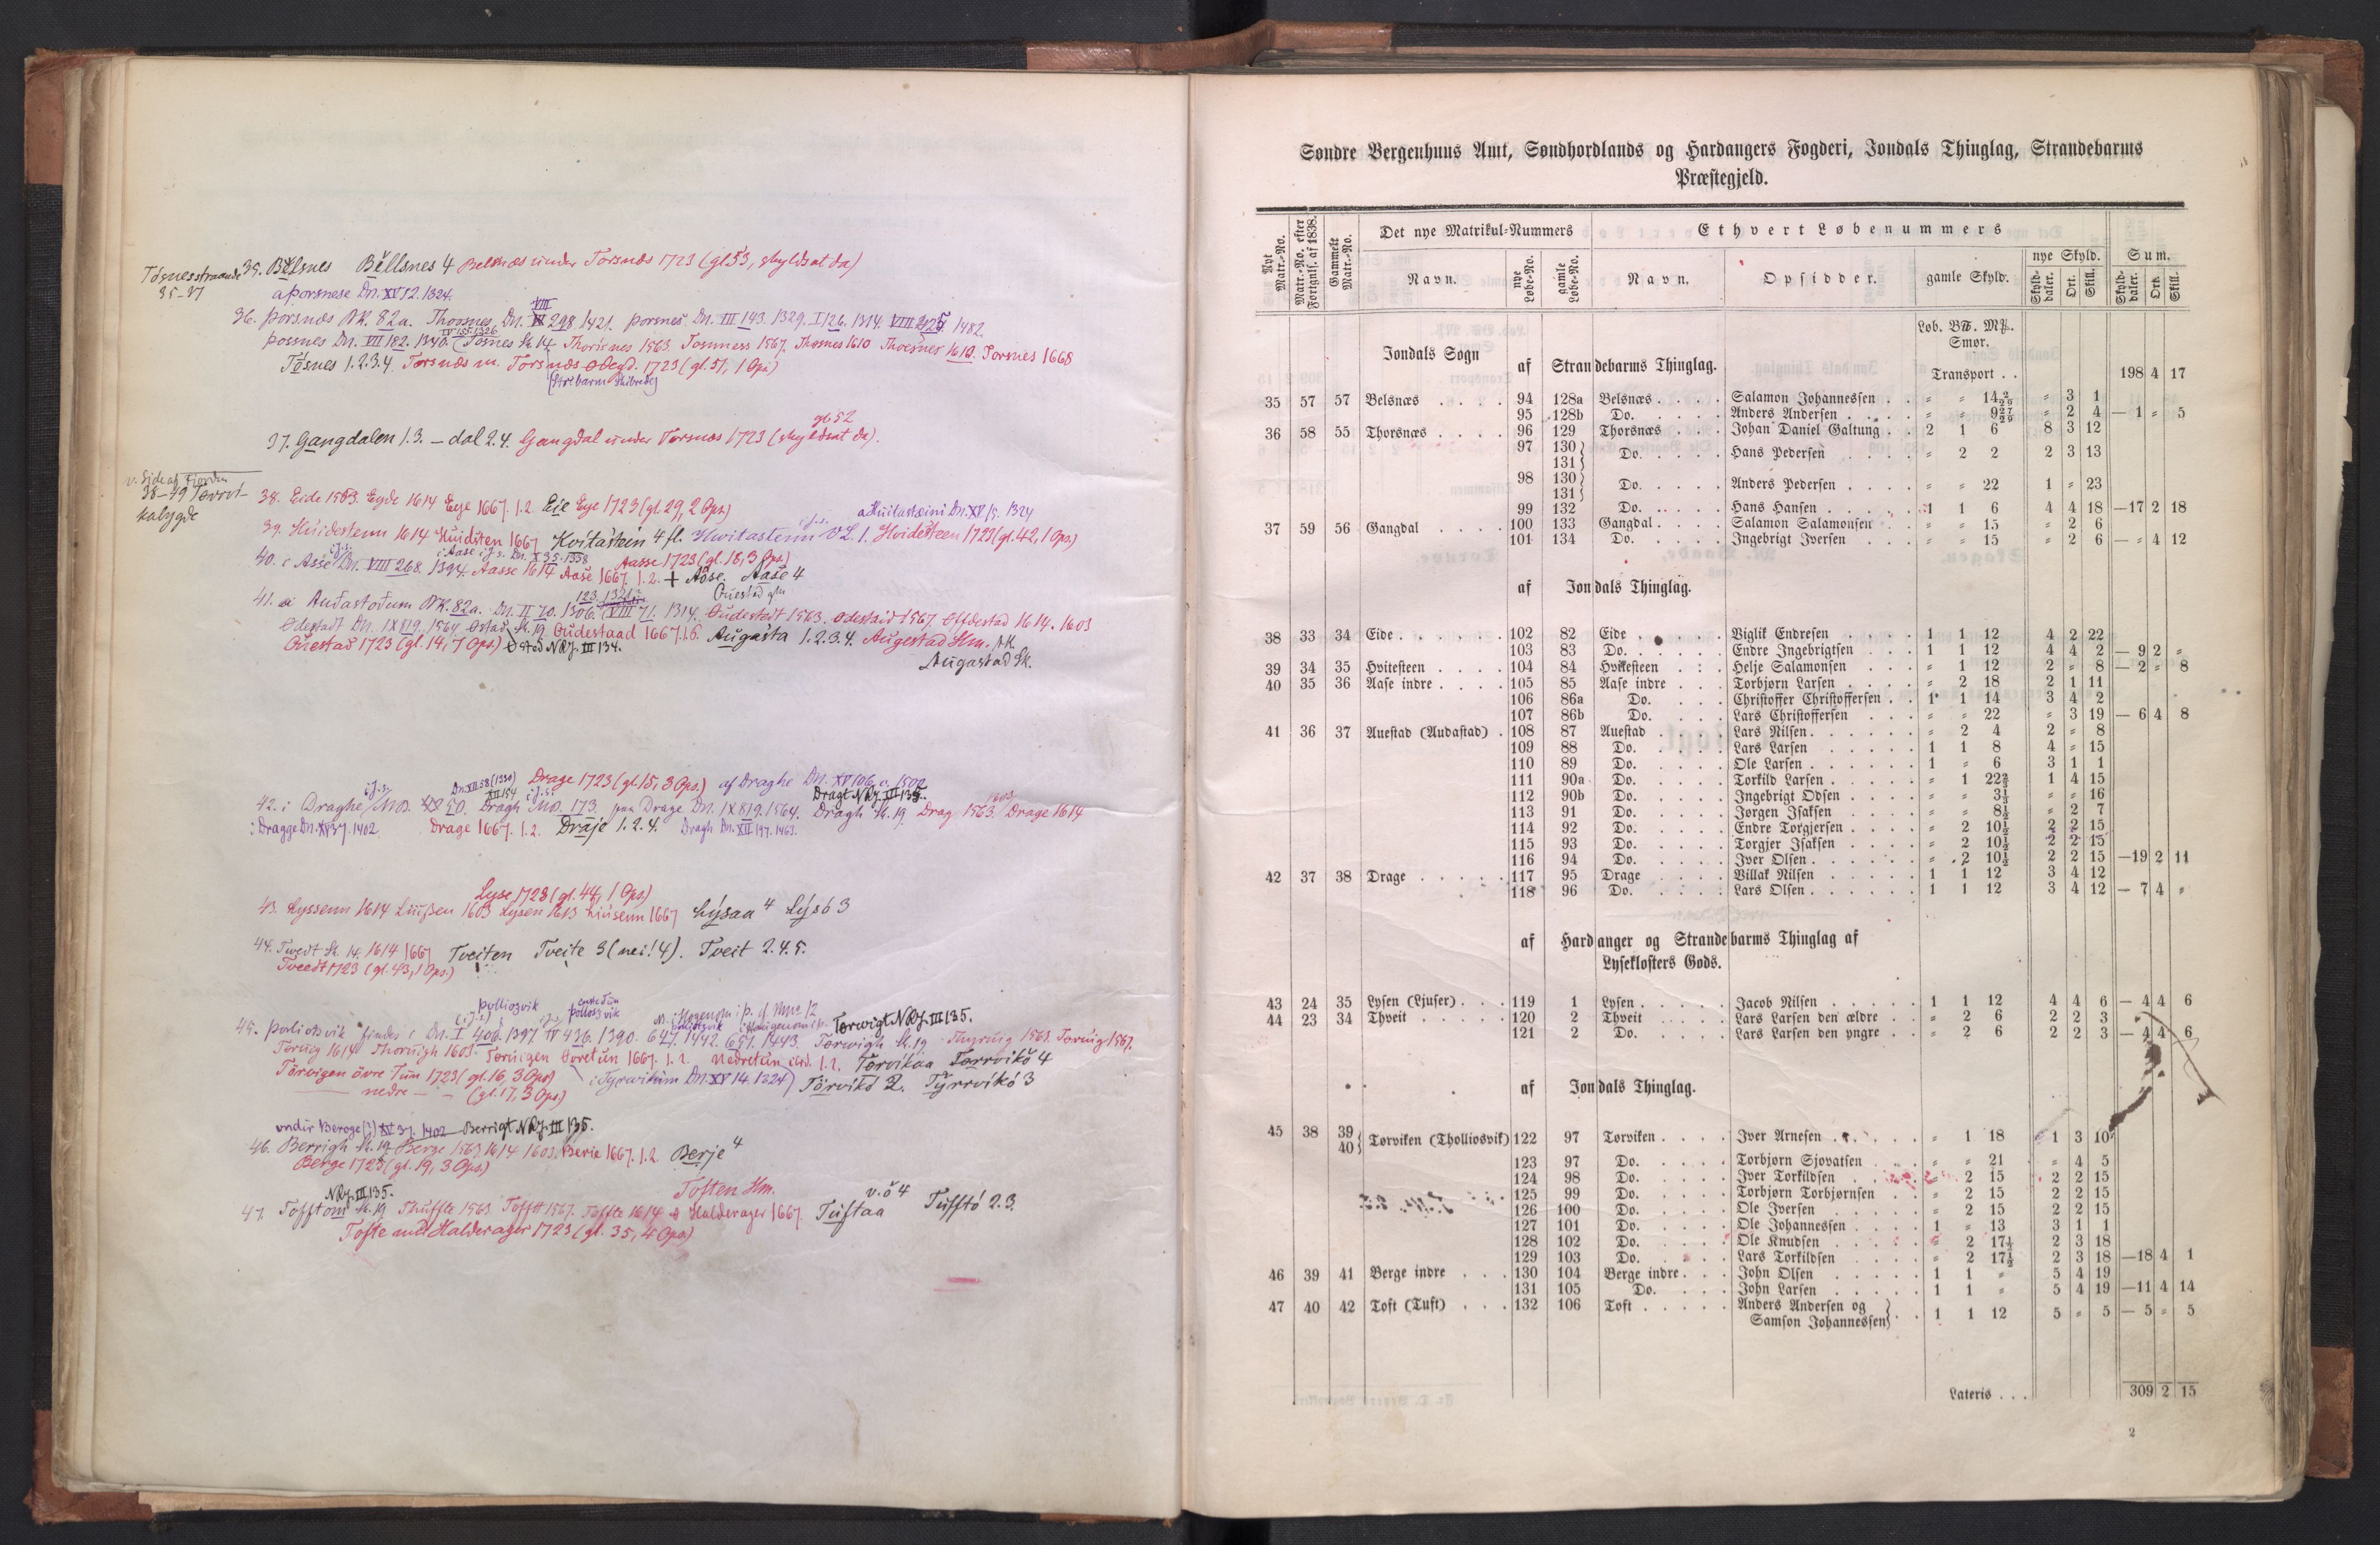 Tösnesstraande
35-37
35. Belsnes Bellsnes 4 Belsnæs under Torsnæs 1723 (gl. 53, skyldsat da)
a þorsnese Dn. XV 12. 1324.
36. þorsnæs BK. 82a. Thoosnes Dn. VIII 298. 1421. þorsnes. Dn. III 143. 1329. I 126. 1314. VIII 425. 1482.
IV 155. 1326
þossnes Dn. VII 182. 1340. (Tosnes Sk. 14. Thorisnes 1563. Tosnness 1567. Thosnes 1610 Thoesnes 1610. Torsnes 1668
Tösnes 1.2.3.4. Torsnæs m. Torsnæs Ødegd. 1723 (gl. 51, 1 Ops.)
(Strebarm Skibrede)
gl. 52
37. Gangdalen 1.3. – dal 2.4. Gangdal under Torsnæs 1723 (skyldsat da).
v. Side af Fjorden
38-49 Torvikabygde
38. Eide 1563. Eyde 1614 Eye 1667. 1.2. Eie Eye 1723 (gl. 29, 2 Ops.)
a Huitasteini Dn. XV 15. 1324
39. Huidestenn 1614 Huidsten 1667 Kvitastein 4 fl. Hvitastenn OL. 1. Hvidesteen 1723 (gl. 42, 1 Ops.)
i Aase i J. s. Dn. X 35. 1338 Aasse 1723 (gl. 18, 3 Ops.)
40. i Asse Dn. VIII 268. 1394. Aasse 1614 Aase 1667. 1.2. + Åse. Aase 4
123. 1321 Ouestad
41. a Audastodum BK. 82a. Dn. II 70. 1306. VIII 71. 1314. Oudestedt 1563. Odestaid 1567. Offdestad 1614. 1603
Ødestadt Dn. IX 819. 1564. Østad Sk. 19. Oudestaad 1667. 1.6. Augasta 1.2.3.4. Augestad Hm. AK.
Ouestad 1723 (gl. 14, 7 Ops.) Østed NRJ. III 134.
Augastad Sk.
Dn. XII 58 (1330) Drage 1723 (gl. 15, 3 Ops.) af Draghe Dn. XV 106. 1502
XII 154 i J. s. Dragt NRJ. III 135.
42. i Draghe MB. 50. Dragh MB. 173. paa Drage Dn. IX 819. 1564. Dragh Sk. 19. Drag 1563. 1603 Drage 1614
i Dragge Dn. XV 37. 1402. Drage 1667. 1.2. Dråje 1.2.4. Dragh Dn. XII 197. 1463.
Lyse 1723 (gl. 44, 1 Ops)
43. Lyssenn 1614 Liußen 1603 Lysen 1613 Liusenn 1667 Lýsaa 4 Lýsó 3
44. Twedt Sk. 14. 1614. 1667 Tveiten Tveite 3 (nei! 4). Tveit 2.4.5.
Tveedt 1723 (gl. 43, 1 Ops.)
þolliosvik
45. þorliosvik findes i Dn. I 406. 1397. IV 436. 1390. 647. 1442. 651. 1443. Torwigh Sk. 19. Thyruig 1563. Toruig 1567.
Torwigt NRJ. III 135.
Toruig 1614 Thoruigh 1603. Toruigen Øvretun 1667. 1.2. Nedretun ibd. 1.2. Torvikaa Torrvikó 4
Torvigen övre Tun 1723 (gl. 16, 3 Ops) i Tyrvikum Dn. XV 14. 1324) Tórvikó 2. Týrrvikó 3
—— nedre – – (gl. 17, 3 Ops.)
under Beroge (i) XV 37. 1402 Berrigt NRJ. III 135.
46. Berrigh Sk. 19. Berge 1563. 1614 1603. Berie 1667. 1.2. Berje 4
Berge 1723 (gl. 19, 3 Ops.)
NRJ. III 135. Toften Hm.
47. Tofftom Sk. 19 Thuffte 1563 Tofft 1567. Toffte 1614 & Halderager 1667. Tuftaa v. ó 4 Tufftó 2.3.
Tofte med Halderager 1723 (gl. 35, 4 Ops.)
Søndre Bergenhuus Amt, Søndhordlands og Hardangers Fogderi, Jondals Thinglag, Strandebarms
Præstegjeld.
Nyt Matr.-No. Matr.-No. efter Forignls. af 1838. Gammelt Matr.-No. Det nye Matrikul-Nummers Ethvert Løbenummers
Navn. nye Løbe-No. gamle Løbe-No. Navn. Opsidder. gamle Skyld. nye Skyld. Sum.
Skylddaler. Ort. Skill. Skylddaler. Ort. Skill.
Løb. Bß. Mß.
Smør.
Jondals Sogn af Strandebarms Thinglag.
Transport . . 198 4 17
35 57 57 Belsnæs . . . . 94 128a Belsnæs . . . . Salamon Johannessen . . " " 14 2/29 " 3 1
95 128b Do. . . . . Anders Andersen . . . . " " 9 27/29 " 2 4 — 1 " 5
36 58 55 Thorsnæs . . . . 96 129 Thorsnæs . . . Johan Daniel Galtung . . 2 1 6 8 3 12
97 130 131} Do. . . . . Hans Pedersen . . . . " 2 2 2 3 13
98 130 131} Do. . . . . Anders Pedersen . . . . " " 22 1 " 23
99 132 Do. . . . . Hans Hansen . . . . . 1 1 6 4 4 18 —17 2 18
37 59 56 Gangdal . . . . 100 133 Gangdal . . . . Salamon Salamonsen . . " " 15 " 2 6
101 134 Do. . . . . Ingebrigt Iversen . . . " " 15 " 2 6 — " 4 12
af Jondals Thinglag.
38 33 34 Eide . . . . . . 102 82 Eide . . . . . Viglik Endresen . . . . 1 1 12 4 2 22
103 83 Do. . . . . . Endre Ingebrigtsen . . . 1 1 12 4 4 2 — 9 2 "
39 34 35 Hvitesteen . . . . 104 84 Hvitesteen . . . Helje Salamonsen . . . " 1 12 2 " 8 — 2 " 8
40 35 36 Aase indre . . . . 105 85 Aase indre . . . Torbjørn Larsen . . . . " 2 18 2 1 11
106 86a Do. . . . Christoffer Christoffersen . . 1 1 14 3 4 2
107 86b Do. . . . Lars Christoffersen . . . " " 22 " 3 19 — 6 4 8
41 36 37 Auestad (Audastad) . 108 87 Auestad . . . . Lars Nilsen . . . . . . " 2 4 2 " 8
109 88 Do. . . . . Lars Larsen . . . . . 1 1 8 4 " 15
110 89 Do. . . . . Ole Larsen . . . . . . 1 " 6 3 1 1
111 90a Do. . . . . Torkild Larsen . . . . . " 1 22 2/3 1 4 15
112 90b Do. . . . . Ingebrigt Odsen . . . . " " 3 1/3 " " 16
113 91 Do. . . . . Jørgen Isaksen . . . . " " 8 1/2 " 2 7
114 92 Do. . . . . Endre Torgjersen . . . . " 2 10 1/2 2 2 15
115 93 Do. . . . . Torgjer Isaksen . . . . " 2 10 1/2 2 2 15
116 94 Do. . . . . Iver Olsen . . . . . . " 2 10 1/2 2 2 15 —19 2 11
42 37 38 Drage . . . . . 117 95 Drage . . . . Villak Nilsen . . . . . 1 1 12 3 4 12
118 96 Do. . . . . Lars Olsen . . . . . . 1 1 12 3 4 12 — 7 4 "
af Hardanger og Strandebarms Thinglag af
Lyseklosters Gods.
43 24 35 Lysen (Ljuser) . . . 119 1 Lysen . . . . . Jacob Nilsen . . . . . 1 1 12 4 4 6 — 4 4 6
44 23 34 Thveit . . . . . 120 2 Thveit . . . . Lars Larsen den ældre . . " 2 6 2 2 3
121 2 Do. . . . . Lars Larsen den yngre . . " 2 6 2 2 3 — 4 4 6
af Jondals Thinglag.
45 38 39 40} Torviken (Tholliosvik) 122 97 Torviken . . . . Iver Arnesen . . . . . " 1 18 1 3 10
123 97 Do. . . . . Torbjørn Sjovatsen . . . " " 21 " 4 5
124 98 Do. . . . . Iver Torkildsen . . . . " 2 15 2 2 15
125 99 Do. . . . . Torbjørn Torbjørnsen . . " 2 15 2 2 15
126 100 Do. . . . . Ole Iversen . . . . . " 2 15 2 2 15
127 101 Do. . . . . Ole Johannessen . . . . 1 " 13 3 1 1
128 102 Do. . . . . Ole Knudsen . . . . . " 2 17 1/2 2 3 18
129 103 Do. . . . . Lars Torkildsen . . . . " 2 17 1/2 2 3 18 —18 4 1
46 39 41 Berge indre . . . 130 104 Berge indre . . . John Olsen . . . . . 1 1 " 5 4 19
131 105 Do. . . . John Larsen . . . . . 1 1 " 5 4 19 —11 4 14
47 40 42 Toft (Tuft) . . . 132 106 Toft . . . . . Anders Andersen og
Samson Johannessen} . . 1 1 12 5 " 5 — 5 " 5
Lateris . . . 309 2 15
2